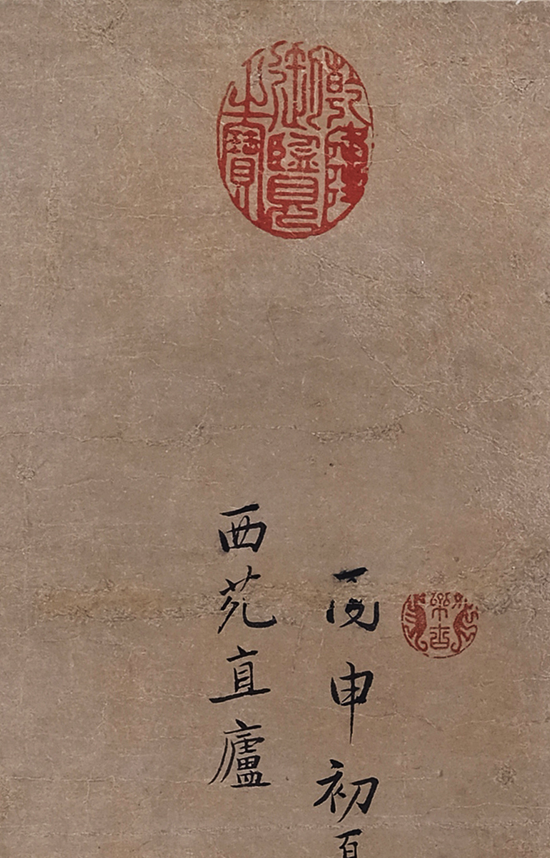 乾隆
御覽
之寶
丙申初夏
西苑直廬